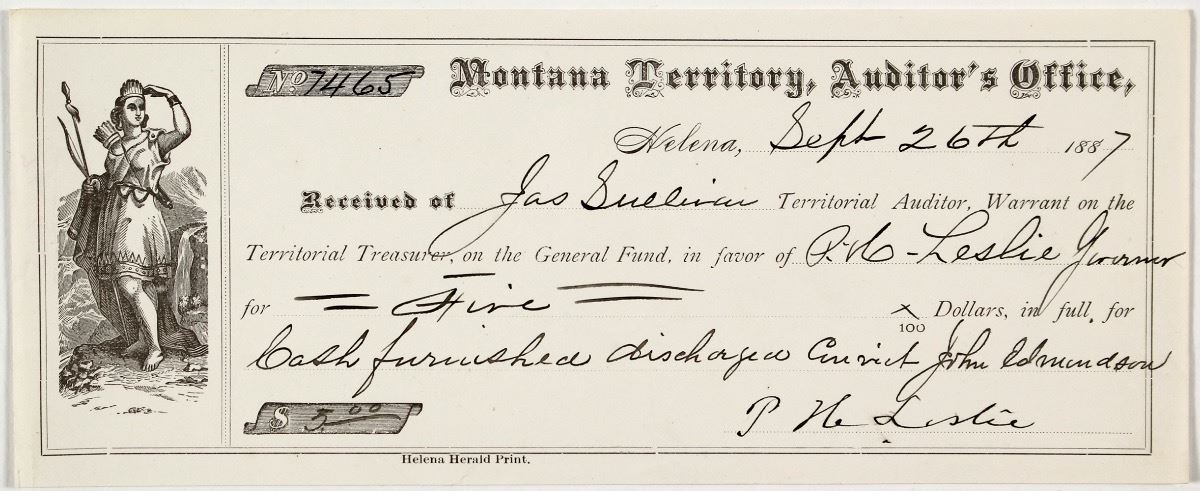 No. 7465 Montana Territory, Auditor's Office,
Helena, Sept 26th 1887
Received of Jas Sullivan Territorial Auditor, Warrant on the
Territorial Treasurer, on the General Fund, in favor of P. H. Leslie Governor
for Five x/100 Dollars, in full, for
Cash furnished discharged Convict John Edmundson
$ 5.00 P H Leslie
Helena Herald Print.